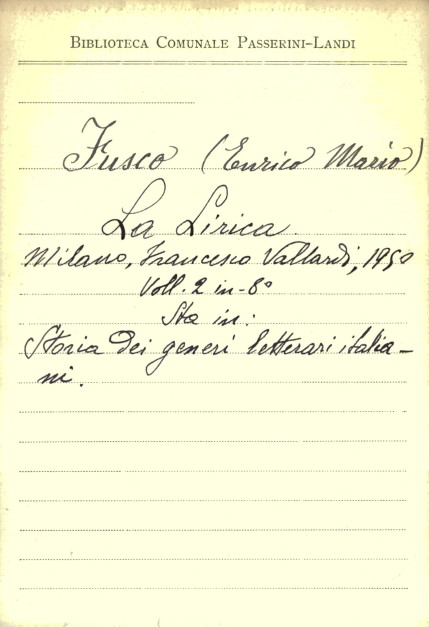 BIBLIOTECA COMUNALE PASSERINI-LANDI
Fusco (Enrico Mario)
La Lirica.
Milano, Francesco Vallardi, 1950
Voll. 2 in-8°
Sta in:
Storia dei generi letterari italia-
ni.